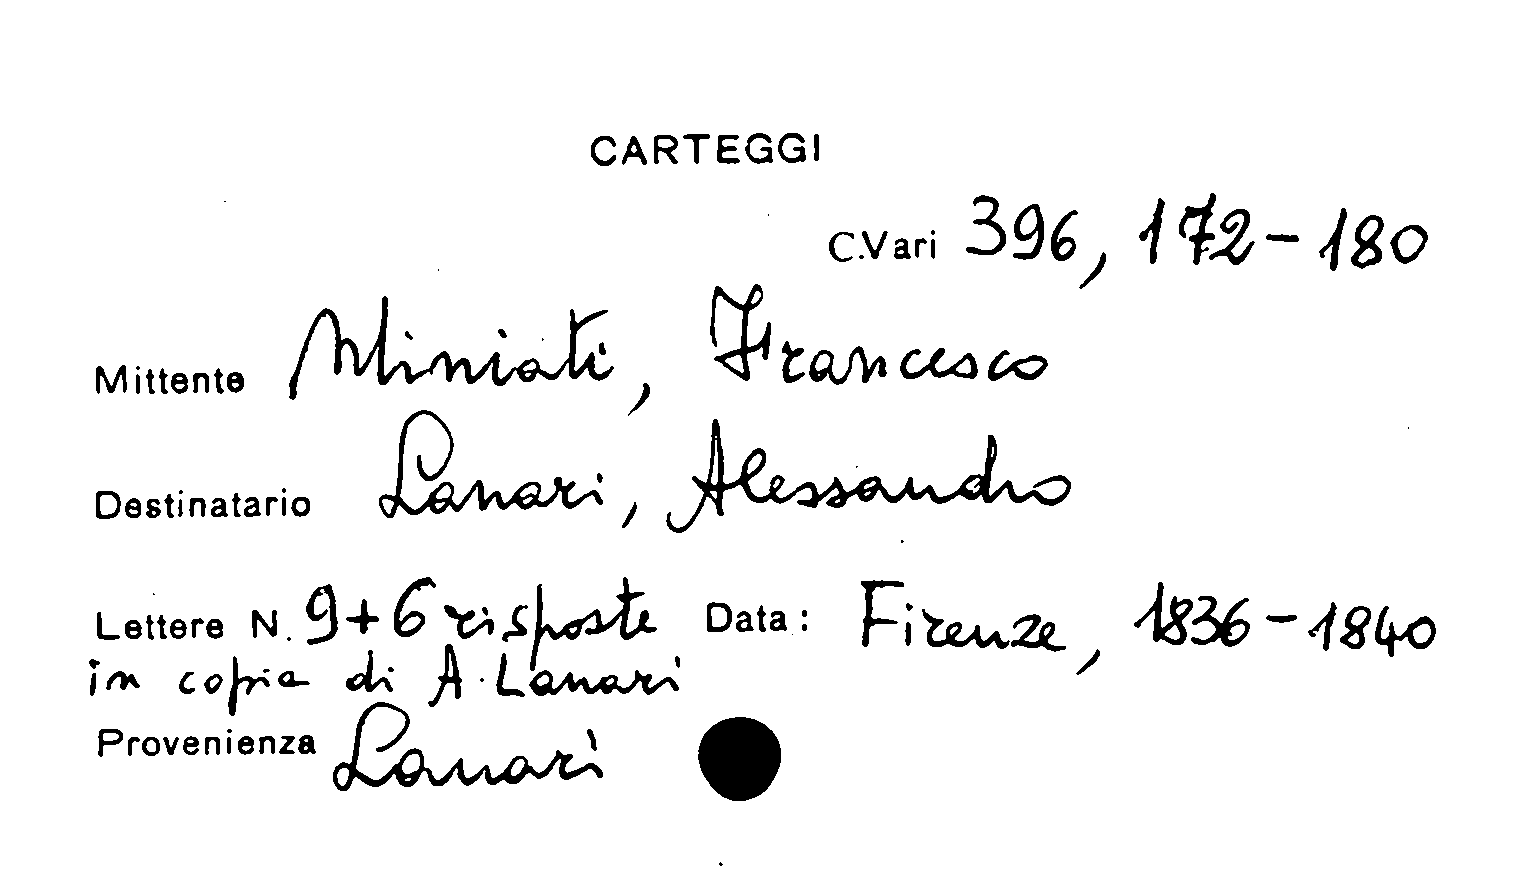 CARTEGGI
C.Vari 396, 172-180
Mittente Miniati, Francesco
Destinatario Lanari, Alessandro
Lettere N. 9+6 risposte Data: Firenze, 1836-1840
in copia di A. Lanari
Provenienza Lanari